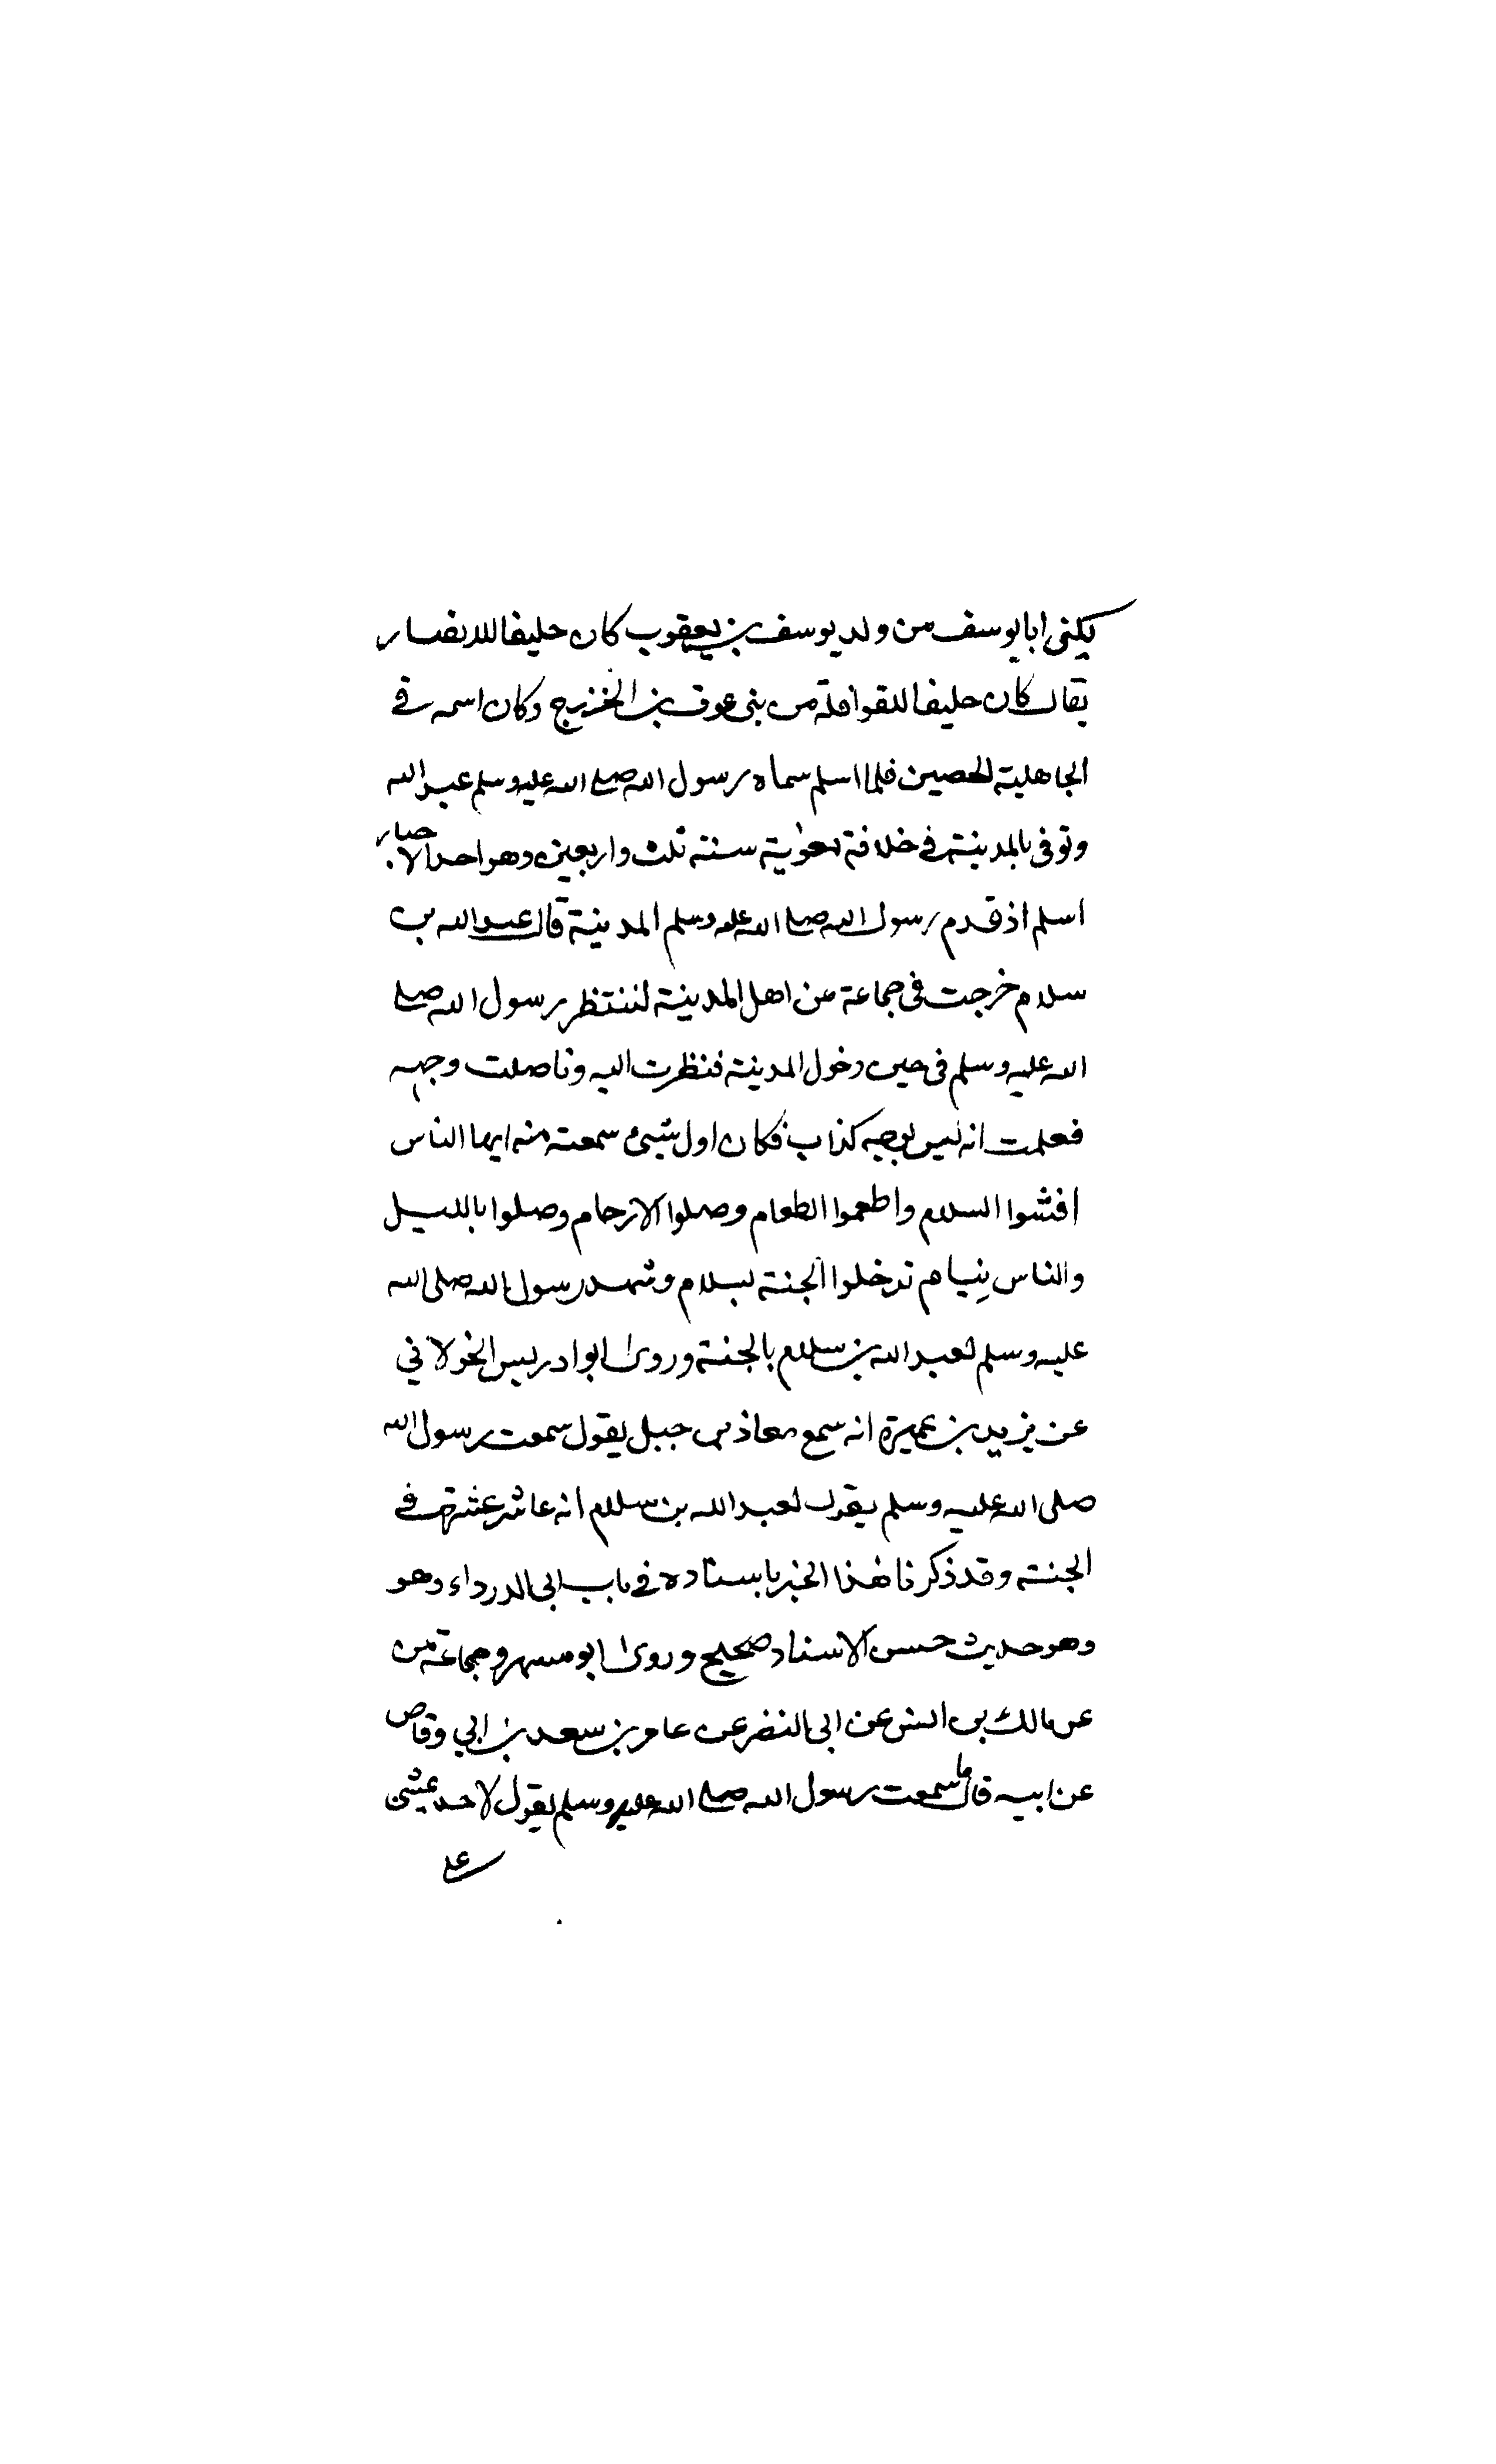 يكنى ابا يوسف من ولد يوسف بن يعقوب كان حليفا للانصار
يقال كان حليفا للقواقلة من بنى عوف بن الخزرج وكان اسمه فى
الجاهلية الحصين فلما اسلم سماه رسول الله صلى الله عليه وسلم عبد الله
وتوفى بالمدينة فى خلافة معوية سنة ثلث واربعين وهو احد الاحبار
اسلم اذ قدم رسول الله صلى الله عليه وسلم المدينة قال عبد الله بن
سلام خرجت فى جماعة من اهل المدينة لننتظر رسول الله صلى
الله عليه وسلم فى حين دخول المدينة فنظرت اليه وتاملت وجهه
فعلمت انه ليس بوجه كذاب فكان اول شيئ سمعته منه ايها الناس
افشوا السلام واطعموا الطعام وصلوا الارحام وصلوا بالليل
والناس نيام تدخلوا الجنة بسلام وشهد رسول الله صلى الله
عليه وسلم لعبد الله بن سلام بالجنة وروى ابو ادريس الخولاني
عن يزيد بن عميرة انه سمع معاذ بن جبل يقول سمعت رسول الله
صلى الله عليه وسلم يقول لعبد الله بن سلام انه عاشر عشرة فى
الجنة وقد ذكرنا هذا الخبر باسناده فى باب ابى الدرداء وهو
وهو حديث حسن الاسناد صحيح وروى ابو مسهر وجماعة من
عن مالك بن انس عن ابى النضر عن عامر بن سعد بن ابي وقاص
عن ابيه قال ما سمعت رسول الله صلى الله عليه وسلم يقول لاحد يمشى
على